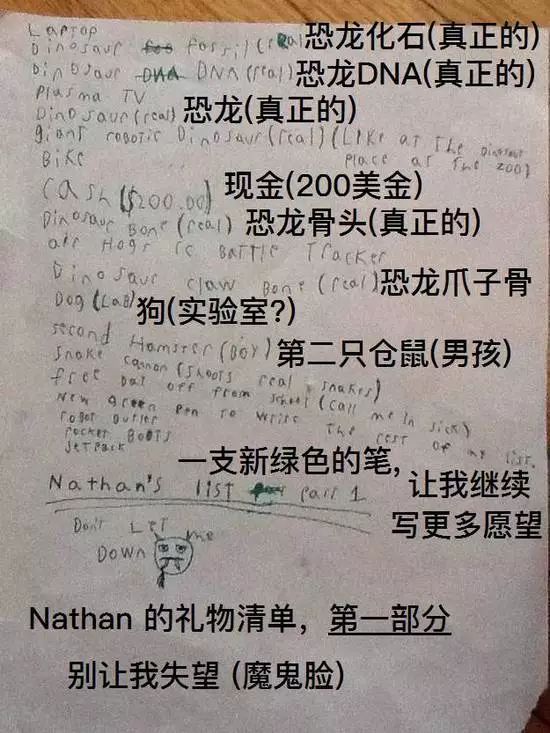 Laptop
Dinosaur fossil (real) 恐龙化石(真正的)
Dinosaur DNA DNA (real) 恐龙DNA(真正的)
Plasma TV
Dinosaur (real) 恐龙(真正的)
giant robotic Dinosaur (real) (Like at the Dinosaur
place at the zoo)
Bike
cash ($200.00) 现金(200美金)
Dinosaur Bone (real) 恐龙骨头(真正的)
air Hogs rc Battle Tracker
Dinosaur claw Bone (real) 恐龙爪子骨
Dog (LaB) 狗(实验室?)
second Hamster (Boy) 第二只仓鼠(男孩)
snake cannon (shoots real snakes)
free Day off from school (call me in sick)
New green Pen to write the rest of my list.
robot Butler
rocket Boots
JetPack
一支新绿色的笔,
让我继续
写更多愿望
Nathan's list part 1
Don't Let me
Down
Nathan 的礼物清单，第一部分
别让我失望 (魔鬼脸)